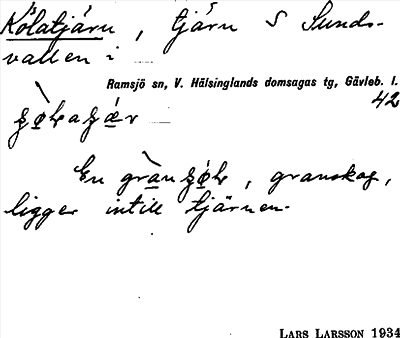 Kölatjärn, tjärn S Sunds-
vallen i
Ramsjö sn, V. Hälsinglands domsagas tg, Gävleb. l.
42
En gran
, granskog,
ligger intill tjärnen.
LARS LARSSON 1934